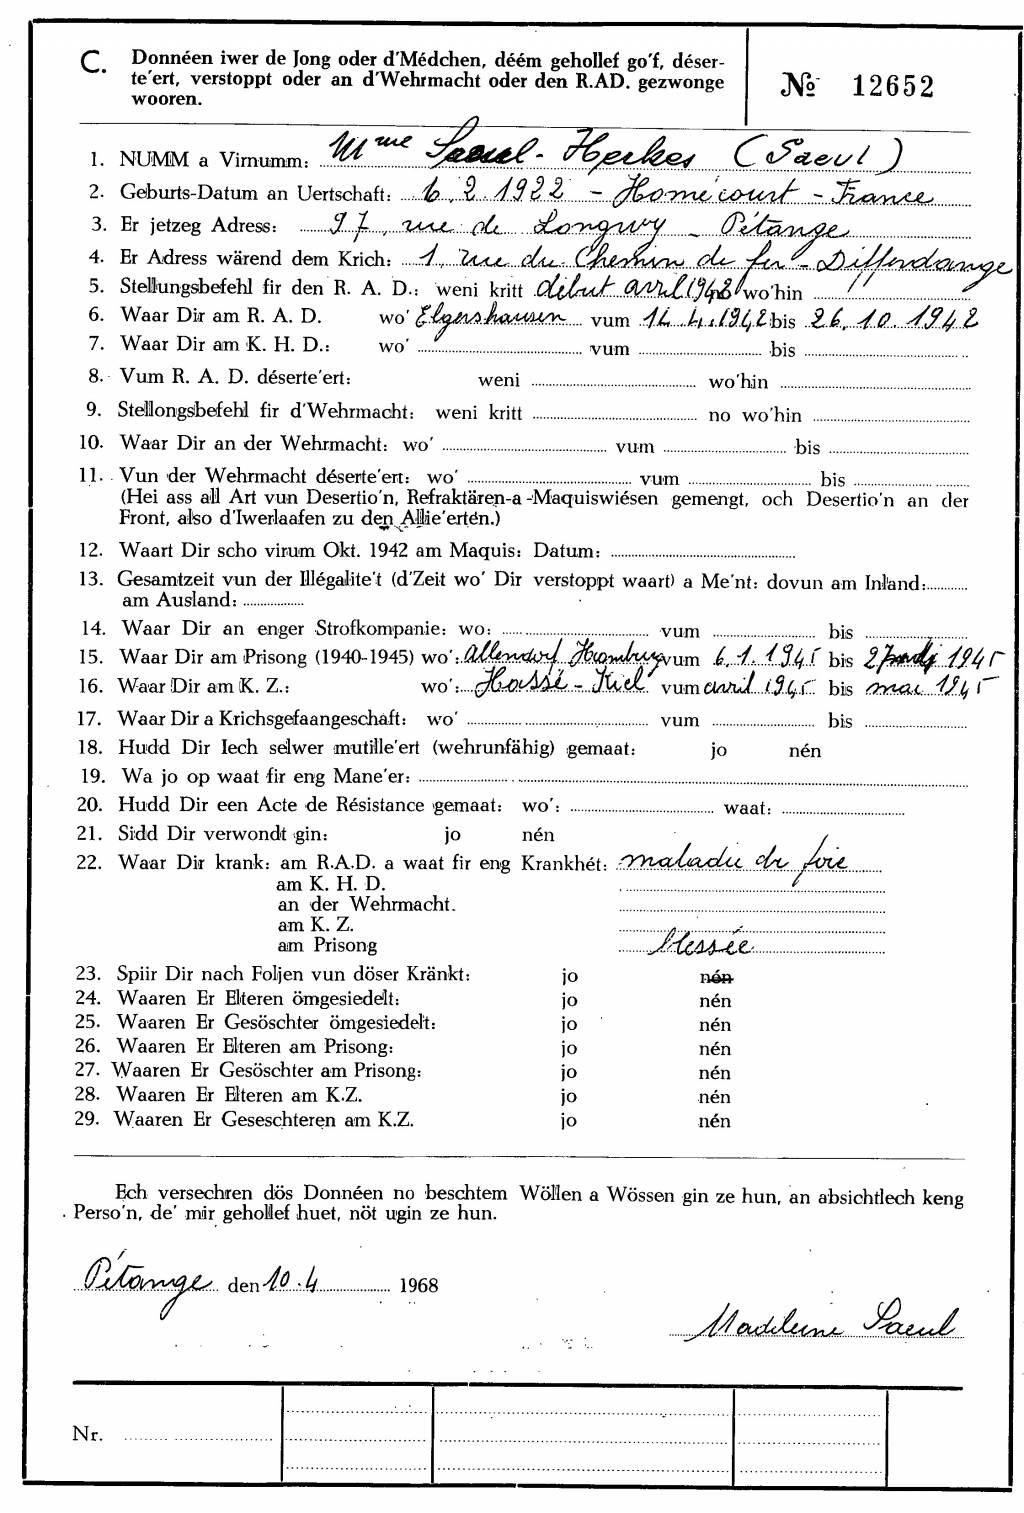 C. Donnéen iwer de Jong oder d'Médchen, déém gehollef go'f, déser-
te'ert, verstoppt oder an d'Wehrmacht oder den R.AD. gezwonge
wooren.
№ 12652
1. NUMM a Virnumm: Mme Saeul - Herkes (Saeul)
2. Geburts-Datum an Uertschaft: 6.2.1922 - Homécourt - France
3. Er jetzeg Adress: 97, rue de Longwy - Pétange
4. Er Adress wärend dem Krich: 1, rue du Chemin de fer - Differdange
5. Stellungsbefehl fir den R. A. D.: weni kritt début avril 1942 no wo'hin
6. Waar Dir am R. A. D. wo' Elgershausen vum 14.4.1942 bis 26.10.1942
7. Waar Dir am K. H. D.: wo' vum bis
8. Vum R. A. D. déserte'ert: weni wo'hin
9. Stellongsbefehl fir d'Wehrmacht: weni kritt no wo'hin
10. Waar Dir an der Wehrmacht: wo' vum bis
11. Vun der Wehrmacht déserte'ert: wo' vum bis
(Hei ass all Art vun Desertio'n, Refraktären-a-Maquiswiésen gemengt, och Desertio'n an der
Front, also d'Iwerlaafen zu den Allie'erten.)
12. Waart Dir scho virum Okt. 1942 am Maquis: Datum:
13. Gesamtzeit vun der Illégalite't (d'Zeit wo' Dir verstoppt waart) a Me'nt: dovun am Inland:
am Ausland:
14. Waar Dir an enger Strofkompanie: wo: vum bis
15. Waar Dir am Prisong (1940-1945) wo': Allendorf Hamburg vum 6.1.1945 bis 1945
16. Waar Dir am K. Z.: wo': Hassé - Kiel vum avril 1945 bis mai 1945
17. Waar Dir a Krichsgefaangeschaft: wo' vum bis
18. Hudd Dir Iech selwer mutille'ert (wehrunfähig) gemaat: jo nén
19. Wa jo op waat fir eng Mane'er:
20. Hudd Dir een Acte de Résistance gemaat: wo': waat:
21. Sidd Dir verwondt gin: jo nén
22. Waar Dir krank: am R.A.D. a waat fir eng Krankhét: maladie de foie
am K. H. D.
an der Wehrmacht.
am K. Z.
am Prisong blessée
23. Spiir Dir nach Foljen vun döser Kränkt: jo nén
24. Waaren Er Elteren ömgesiedelt: jo nén
25. Waaren Er Gesöschter ömgesiedelt: jo nén
26. Waaren Er Elteren am Prisong: jo nén
27. Waaren Er Gesöschter am Prisong: jo nén
28. Waaren Er Elteren am K.Z. jo nén
29. Waaren Er Geseschteren am K.Z. jo nén
Ech versechren dös Donnéen no beschtem Wöllen a Wössen gin ze hun, an absichtlech keng
Perso'n, de' mir gehollef huet, nöt ugin ze hun.
Pétange den 10.4 1968
Madeleine Saeul
Nr.